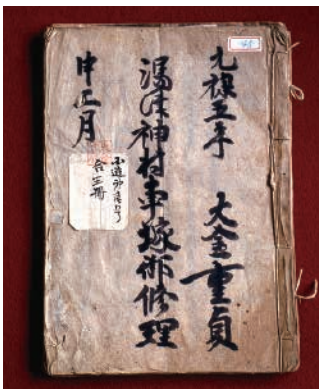 元禄五年　大金重貞
湯津神村車塚御修理
申正月
合三冊